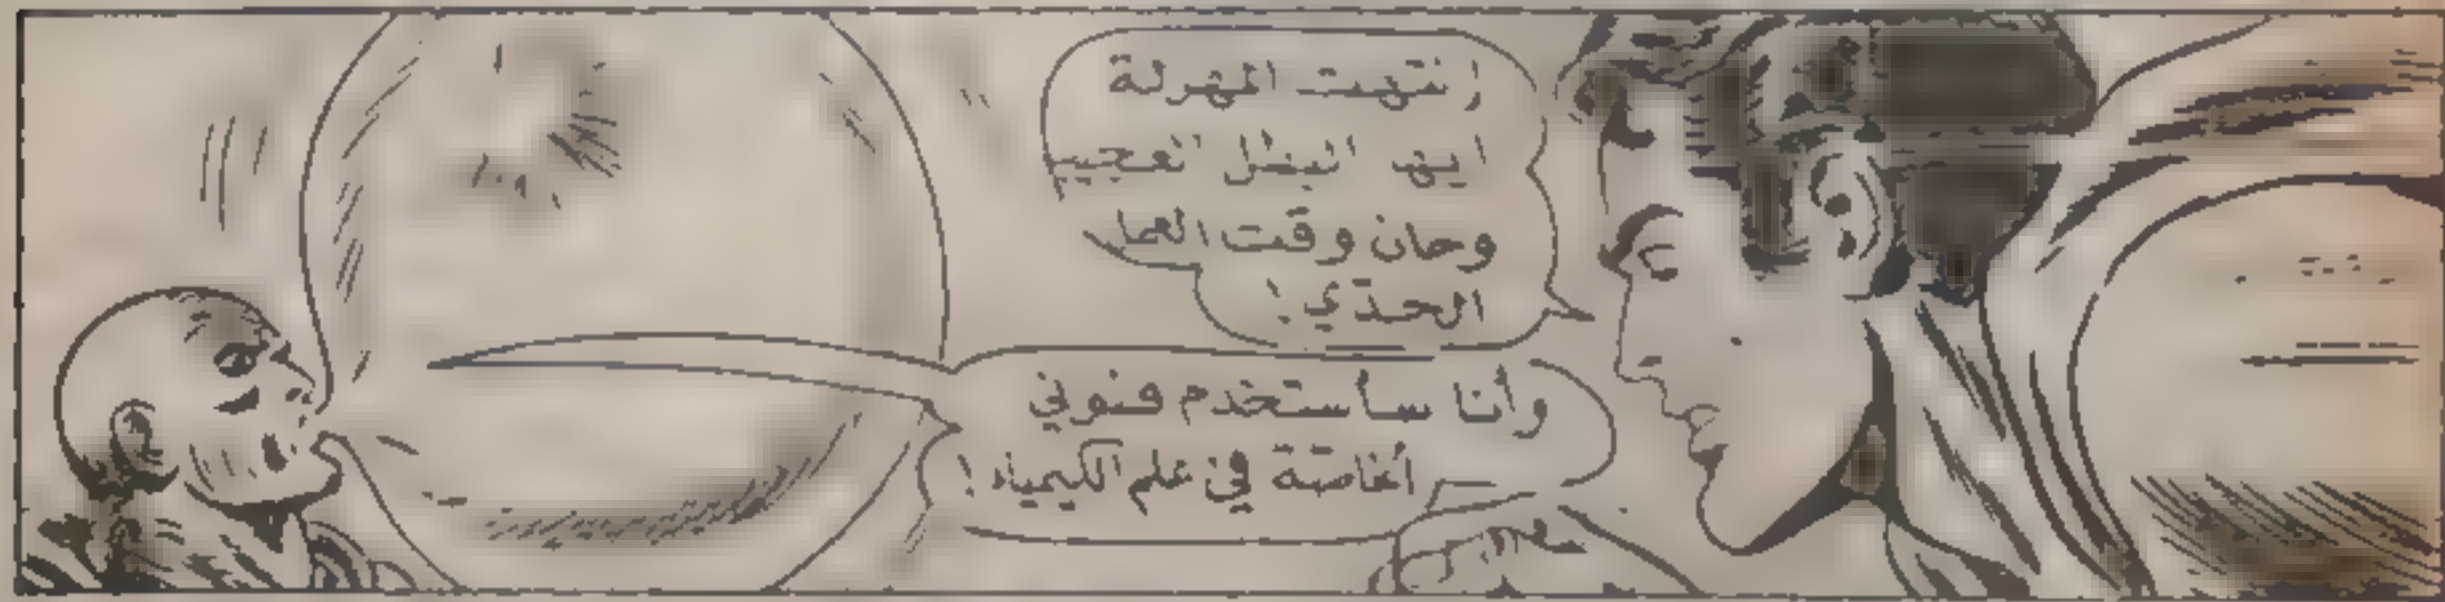 انتهت المهزلة
ايها البطل العجيب
وحان وقت العمل
الجدّي!
وأنا سأستخدم فنوني
الخاصّة في علم الكيمياء!